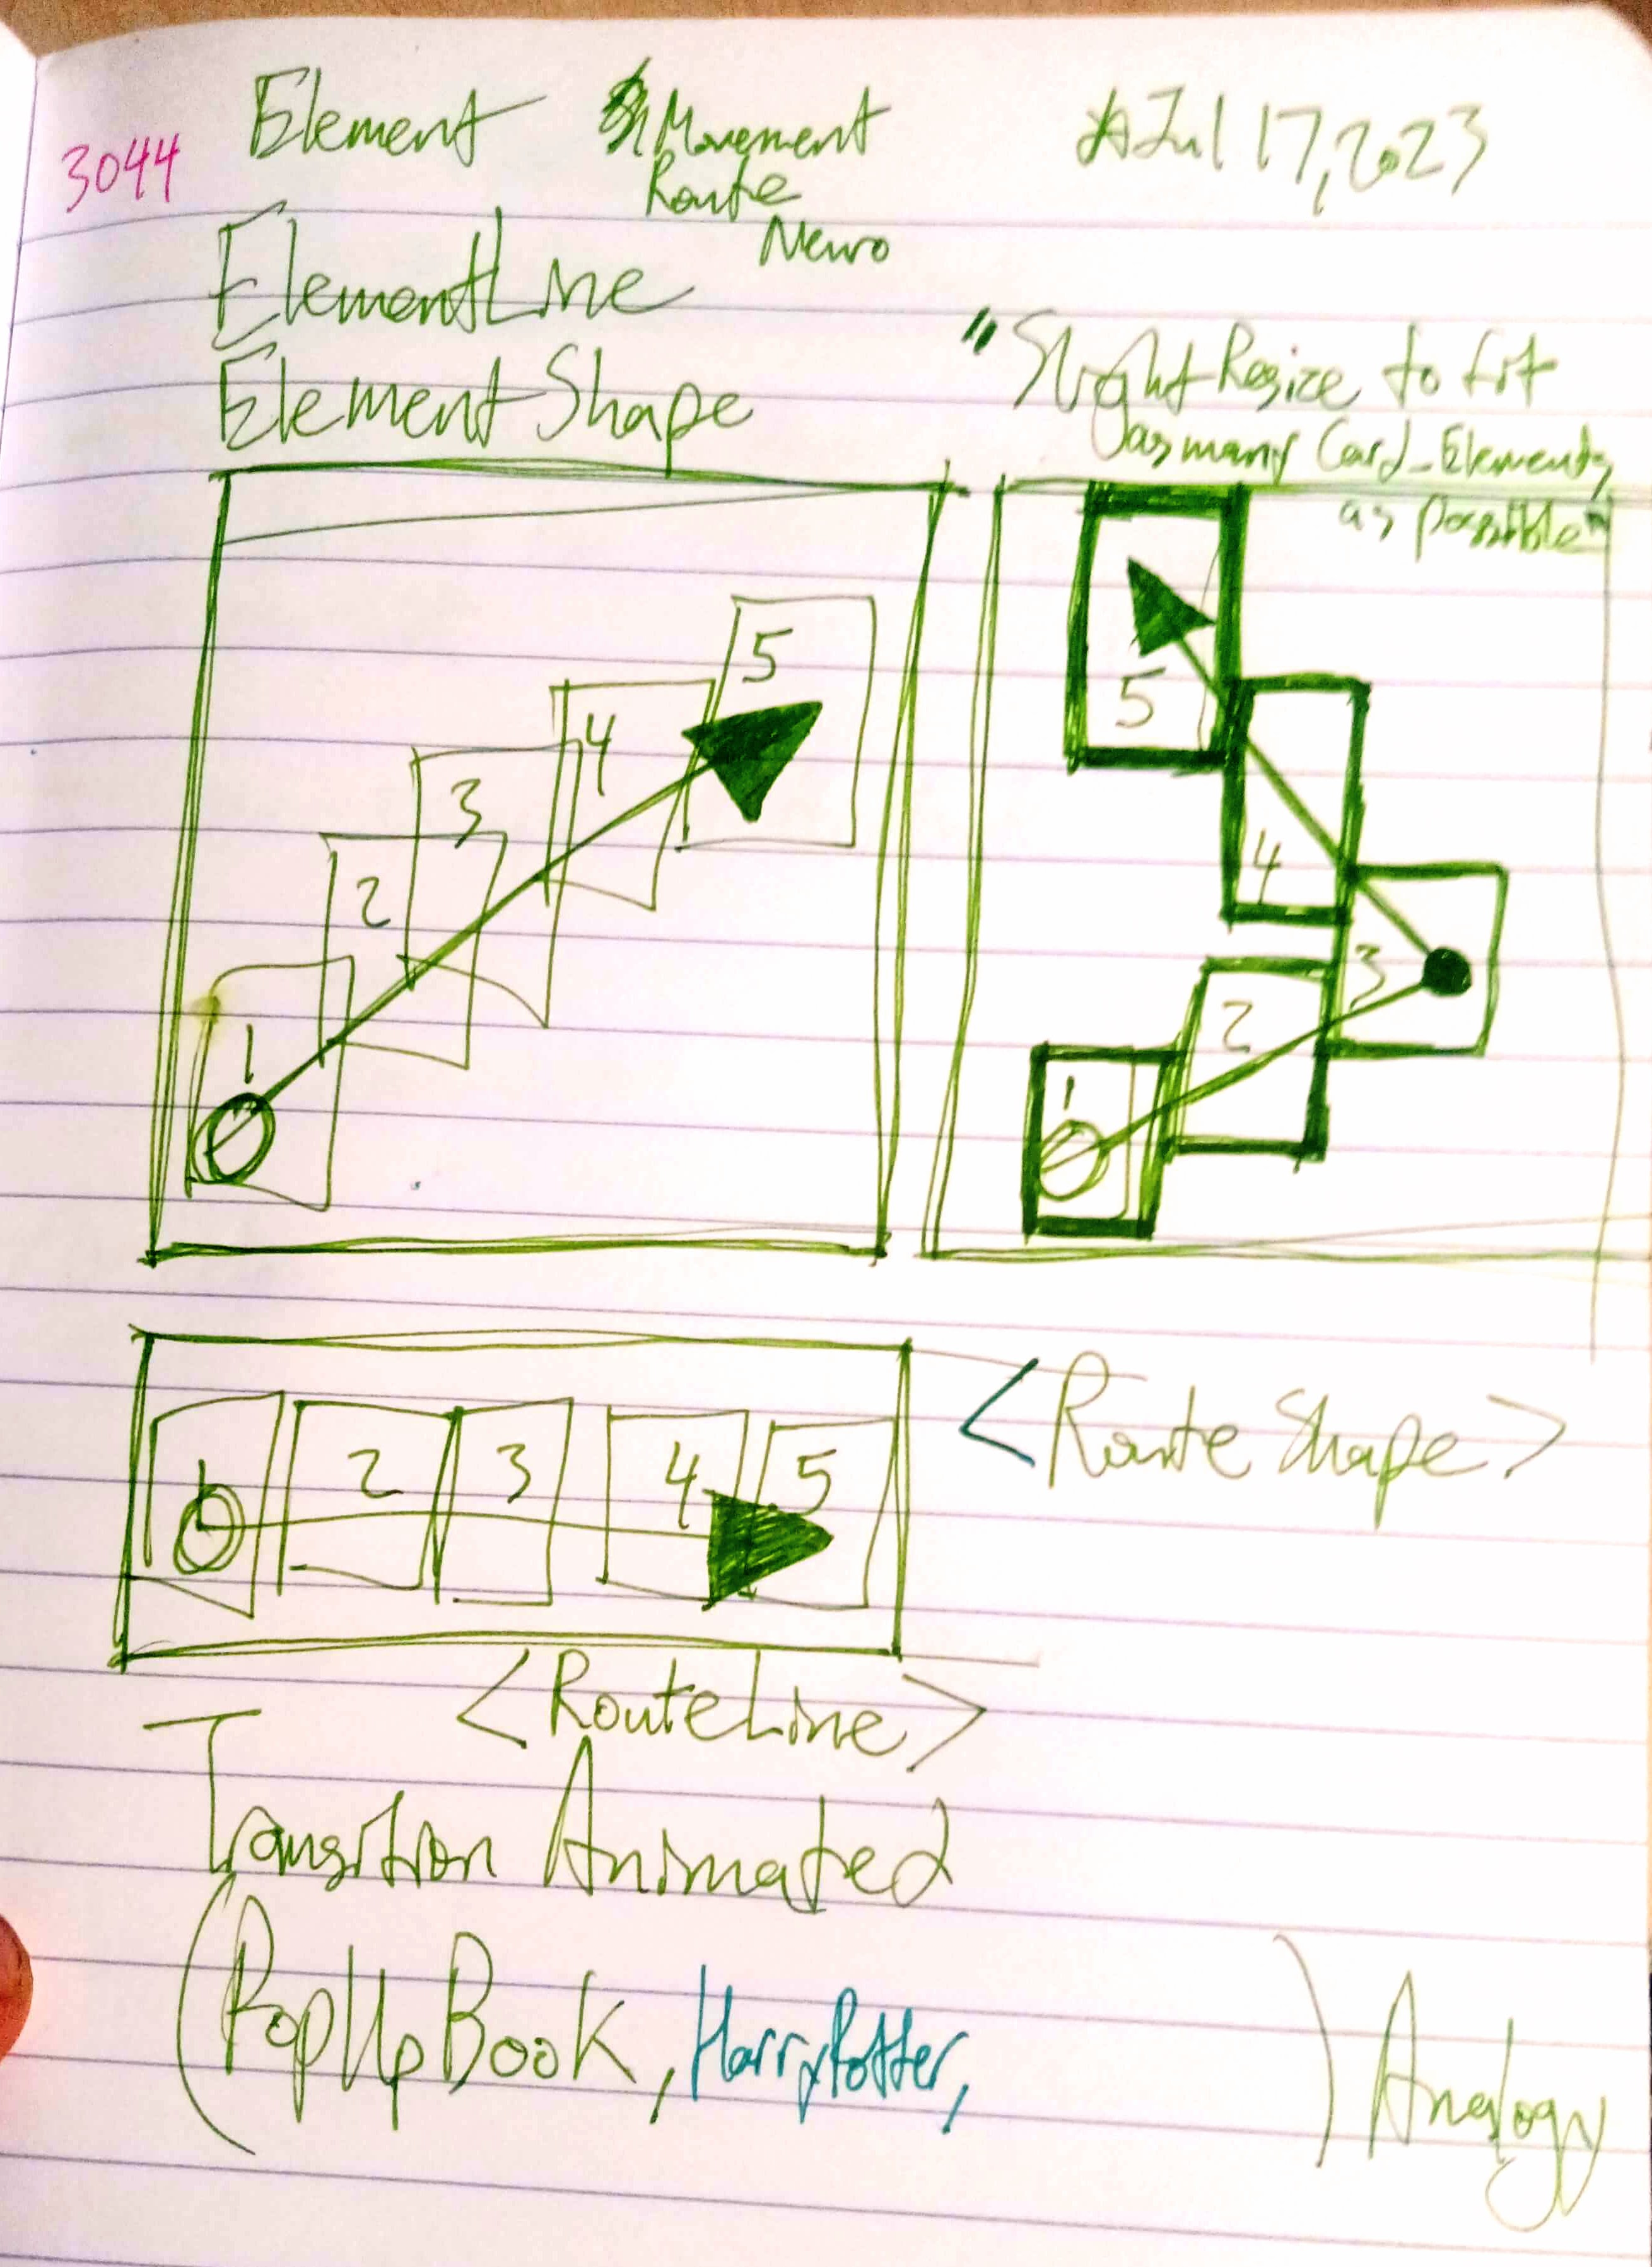 3044
Element Movement
Route
Neuro
Jul 17, 2023
ElementLine
Element Shape
"Slight Resize to fit
as many Card_Elements
as possible"
5
4
3
2
1
5
4
3
2
1
1 2 3 4 5
<Route Shape>
<RouteLine>
Transition Animated
(PopUpBook, HarryPotter, ) Analogy